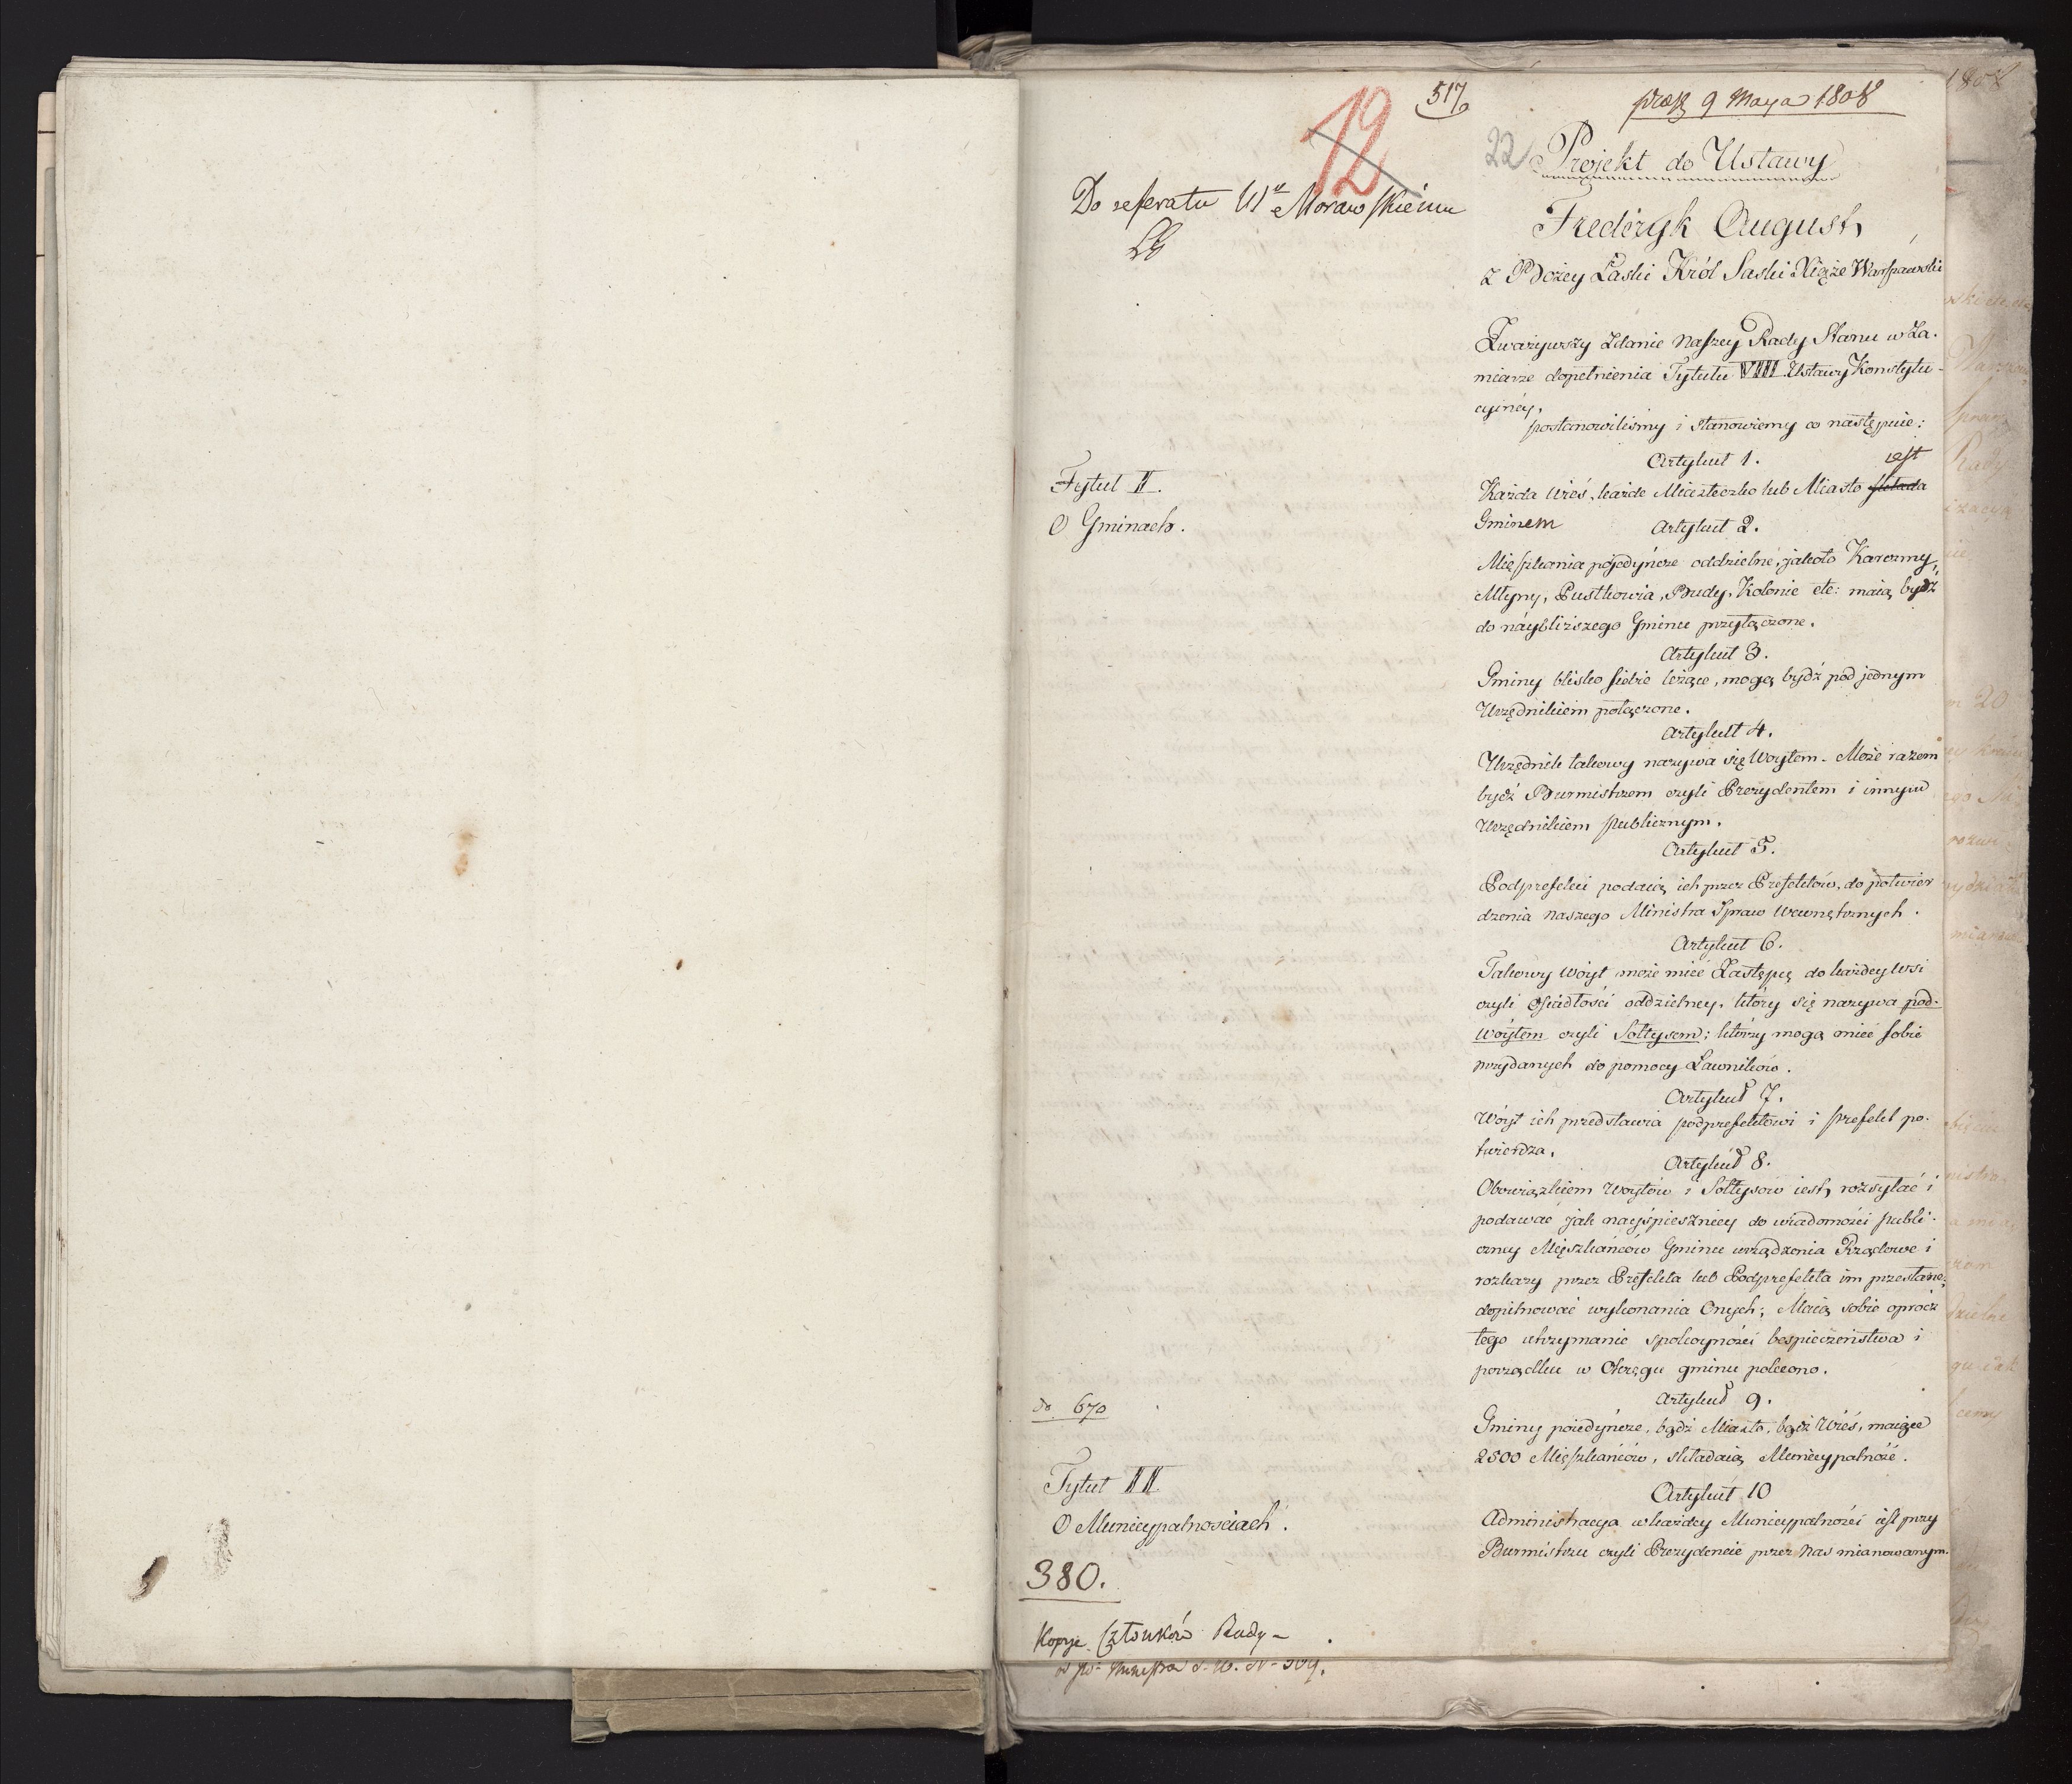 517
12
præs 9 Maya 1808
22 Projekt do Ustawy
Do referatu Wu Morawskiému
Frederyk August,
z Bożey Łaski Król Saski Xiąże Warszawski
Zważywszy Zdanie Naszey Rady Stanu w Za-
miarze dopełnienia Tytułu VIII Ustawy Konstytu-
cyinéy,
postanowiliśmy i stanowiemy co następuie:
Artykuł 1.
Tytuł I.
O Gminach.
iest
Każda Wieś, każde Miasteczko lub Miasto składa
Gminem
Artykuł 2.
Mięszkania pojedyńcze oddzielne, jakoto Karczmy,
Młyny, Pustkowia, Budy, Kolonie etc: maią bydź
do náybliższego Gminu przyłączone.
Artykuł 3.
Gminy blisko siebie leżące, mogą bydź pod jednym
Urzędnikiem połączone.
Artykuł 4.
Urzędnik takowy nazywa się Woytem. Może razem
bydź Burmistrzem czyli Prezydentem i innym
Urzędnikiem publicznym.
Artykuł 5.
Podprefekci podaią ich przez Prefektów, do potwier
dzenia naszego Ministra Spraw Wewnętrznych.
Artykuł 6.
Takowy Woyt może mieć Zastępcę do każdey Wsi
czyli Osiadłości oddzielney, który się nazywa pod-
wóytem czyli Sołtysem; którzy mogą mieć sobie
przydanych do pomocy Ławników.
Artykuł 7.
Wóyt ich przedstawia podprefektowi i prefekt po-
twierdza.
Artykuł 8.
Obowiązkiem Woytów i Sołtysów iest, rozsyłać i
podawać jak nayśpieszniey do wiadomości publi-
czney Mięszkańców Gminu urządzenia Rządowe i
rozkazy przez Prefekta lub Podprefekta im przesłane;
dopilnować wykonania Onych; Maią sobie oprócz
tego utrzymanie spokoyności bespieczeństwa i
porządku w Okręgu gminu polecono.
Artykuł 9.
do 670
Gminy poiedyńcze, bądź Miasto, bądź Wieś, maiące
2500 Mięszkańców, składaią Municypalność.
Tytuł II
O Municypalnosciach.
Artykuł 10
Administracya w każdey Municypalności iest przy
Burmistrzu czyli Prezydencie przez Nas mianowanym.
380.
Kopje Członków Rady